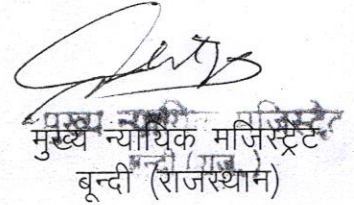 मुख्य न्यायिक मजिस्ट्रेट
बून्दी (राजस्थान)